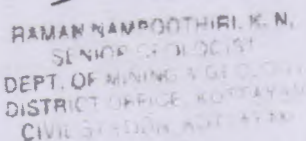 RAMAN NAMPOOTHIRI. K. N.
SENIOR GEOLOGIST
DEPT. OF MINING & GEOLOGY
DISTRICT OFFICE, KOTTAYAM
CIVIL STATION, KOTTAYAM